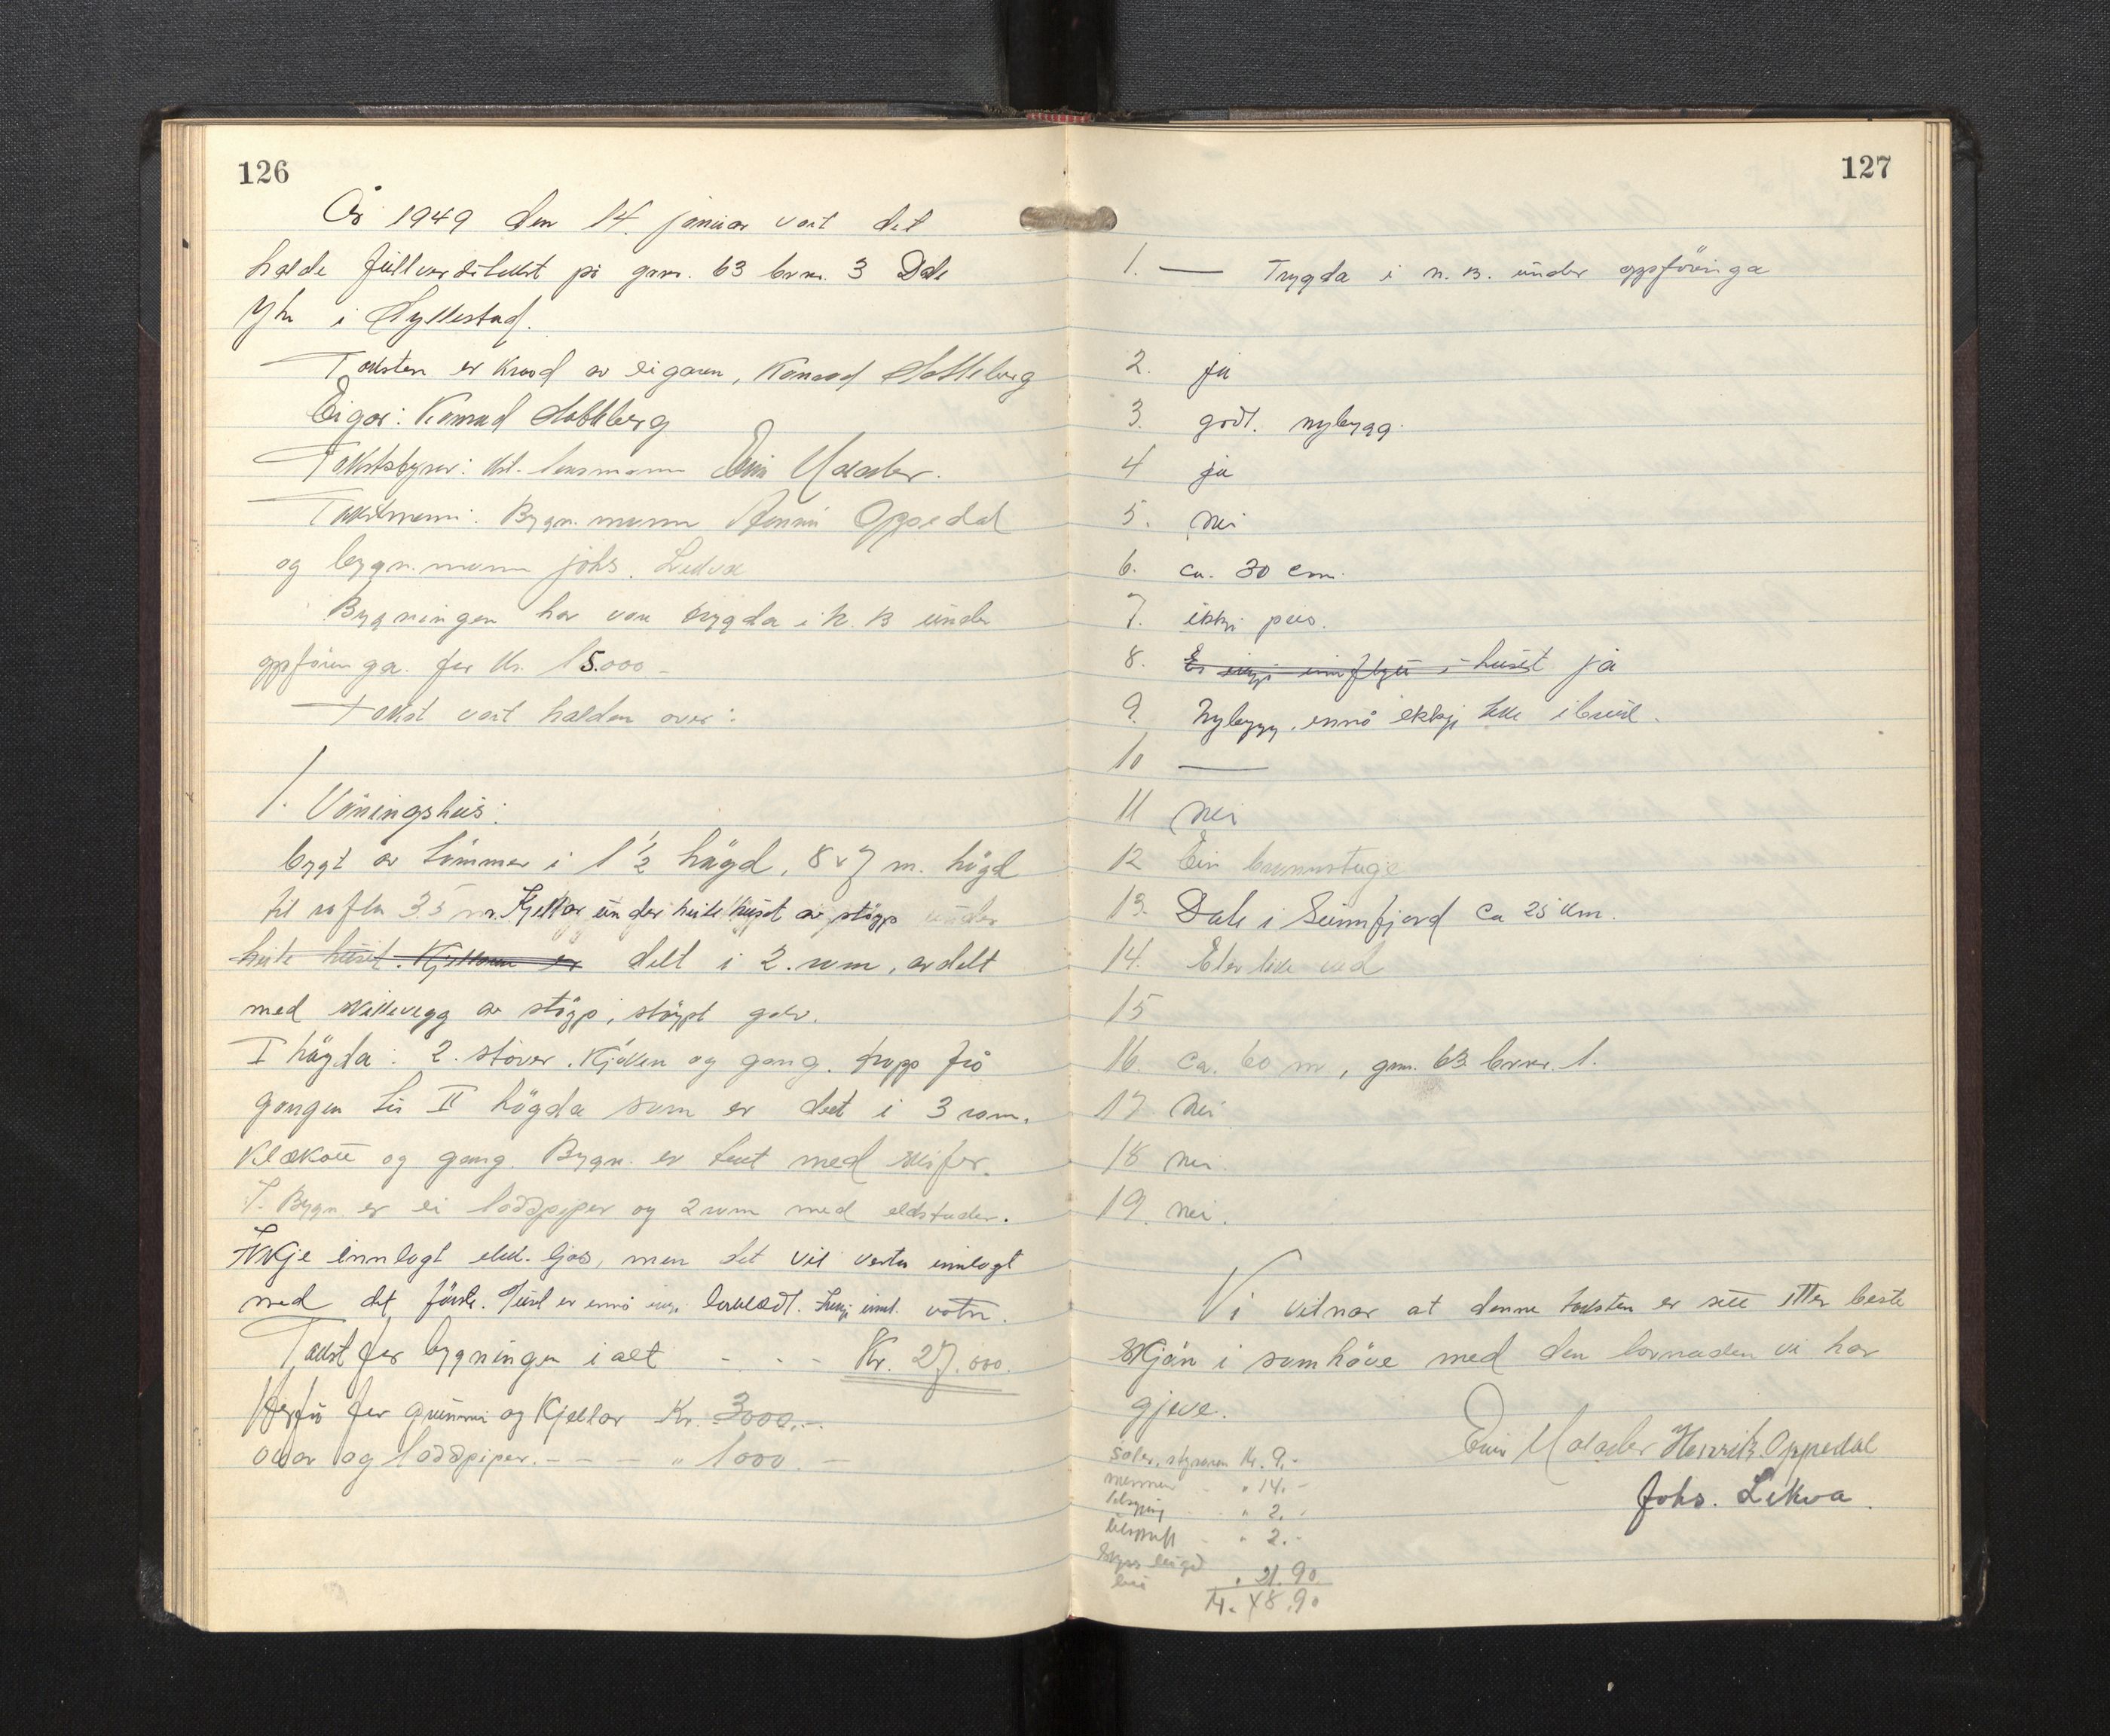 126
År 1949 den 14. januar vart det
halde fullverditakst på gnr. 63 brnr. 3 Dale
Ytre i Hyllestad.
Taksten er kravd av eigaren, Konrad
Eigar: Konrad
Takststyrar: kst. lensmann
Takstmenn: Bygn. mann Henrik Oppedal
og bygn. mann Johs. Likva
Bygningen har vore trygda i N. B under
oppføringa for kr. 15.000 -
Takst vart halden over:
1. Våningshus:
bygt av tømmer i 1 1/2 høgd, 8 x 7 m. høgd
til rafta 3.5 m. Kjellar under heile huset av støyp under
heile huset. Kjellaren er delt i 2. rom, avdelt
med skillevegg av støyp, støypt golv.
I høgda: 2. stover. Kjøken og gang. trapp frå
gangen til II høgda som er delt i 3 rom.
Klækott og gang. Bygn. er tekt med skifer.
I Bygn. er ei loddpipe og 2 rom med eldstader.
Ikkje innlagt elek. ljos, men det vil verta innlagt
med det første. Huset er ennå ikkje bordklædt. Ikkje innl. vatn.
Takst for bygningen i alt - - - Kr. 27.000.
Herfrå for grunnmur og Kjellar Kr. 3000.-
ovar og loddpiper. - - - " 1000. -
127
1. — Trygda i N. B. under oppføringa
2. ja
3. godt. nybygg.
4 ja
5. nei
6. ca. 30 cm.
7. ikkje pus.
8. Er ikkje innflytt i huset ja
9. Nybygg, ennå ikkje teke i bruk.
10 —
11 nei
12 Ein brannstuge
13. Dale i Sunnfjord ca 25 km.
14. Elektrisk ved
15
16. ca. 60 m, gnr. 63 brnr. 1.
17 nei
18 nei.
19. nei.
Vi vitnar at denne taksten er sett etter beste
skjøn i samhøve med den lovnaden vi har
gjeve.
Henrik Oppedal
Johs. Likva.
Salær, styraren kr. 9.-
mennene - " 14.-
" 2.-
utskrift - " 2.-
Skyss lengd
" 21.90
kr. 48.90